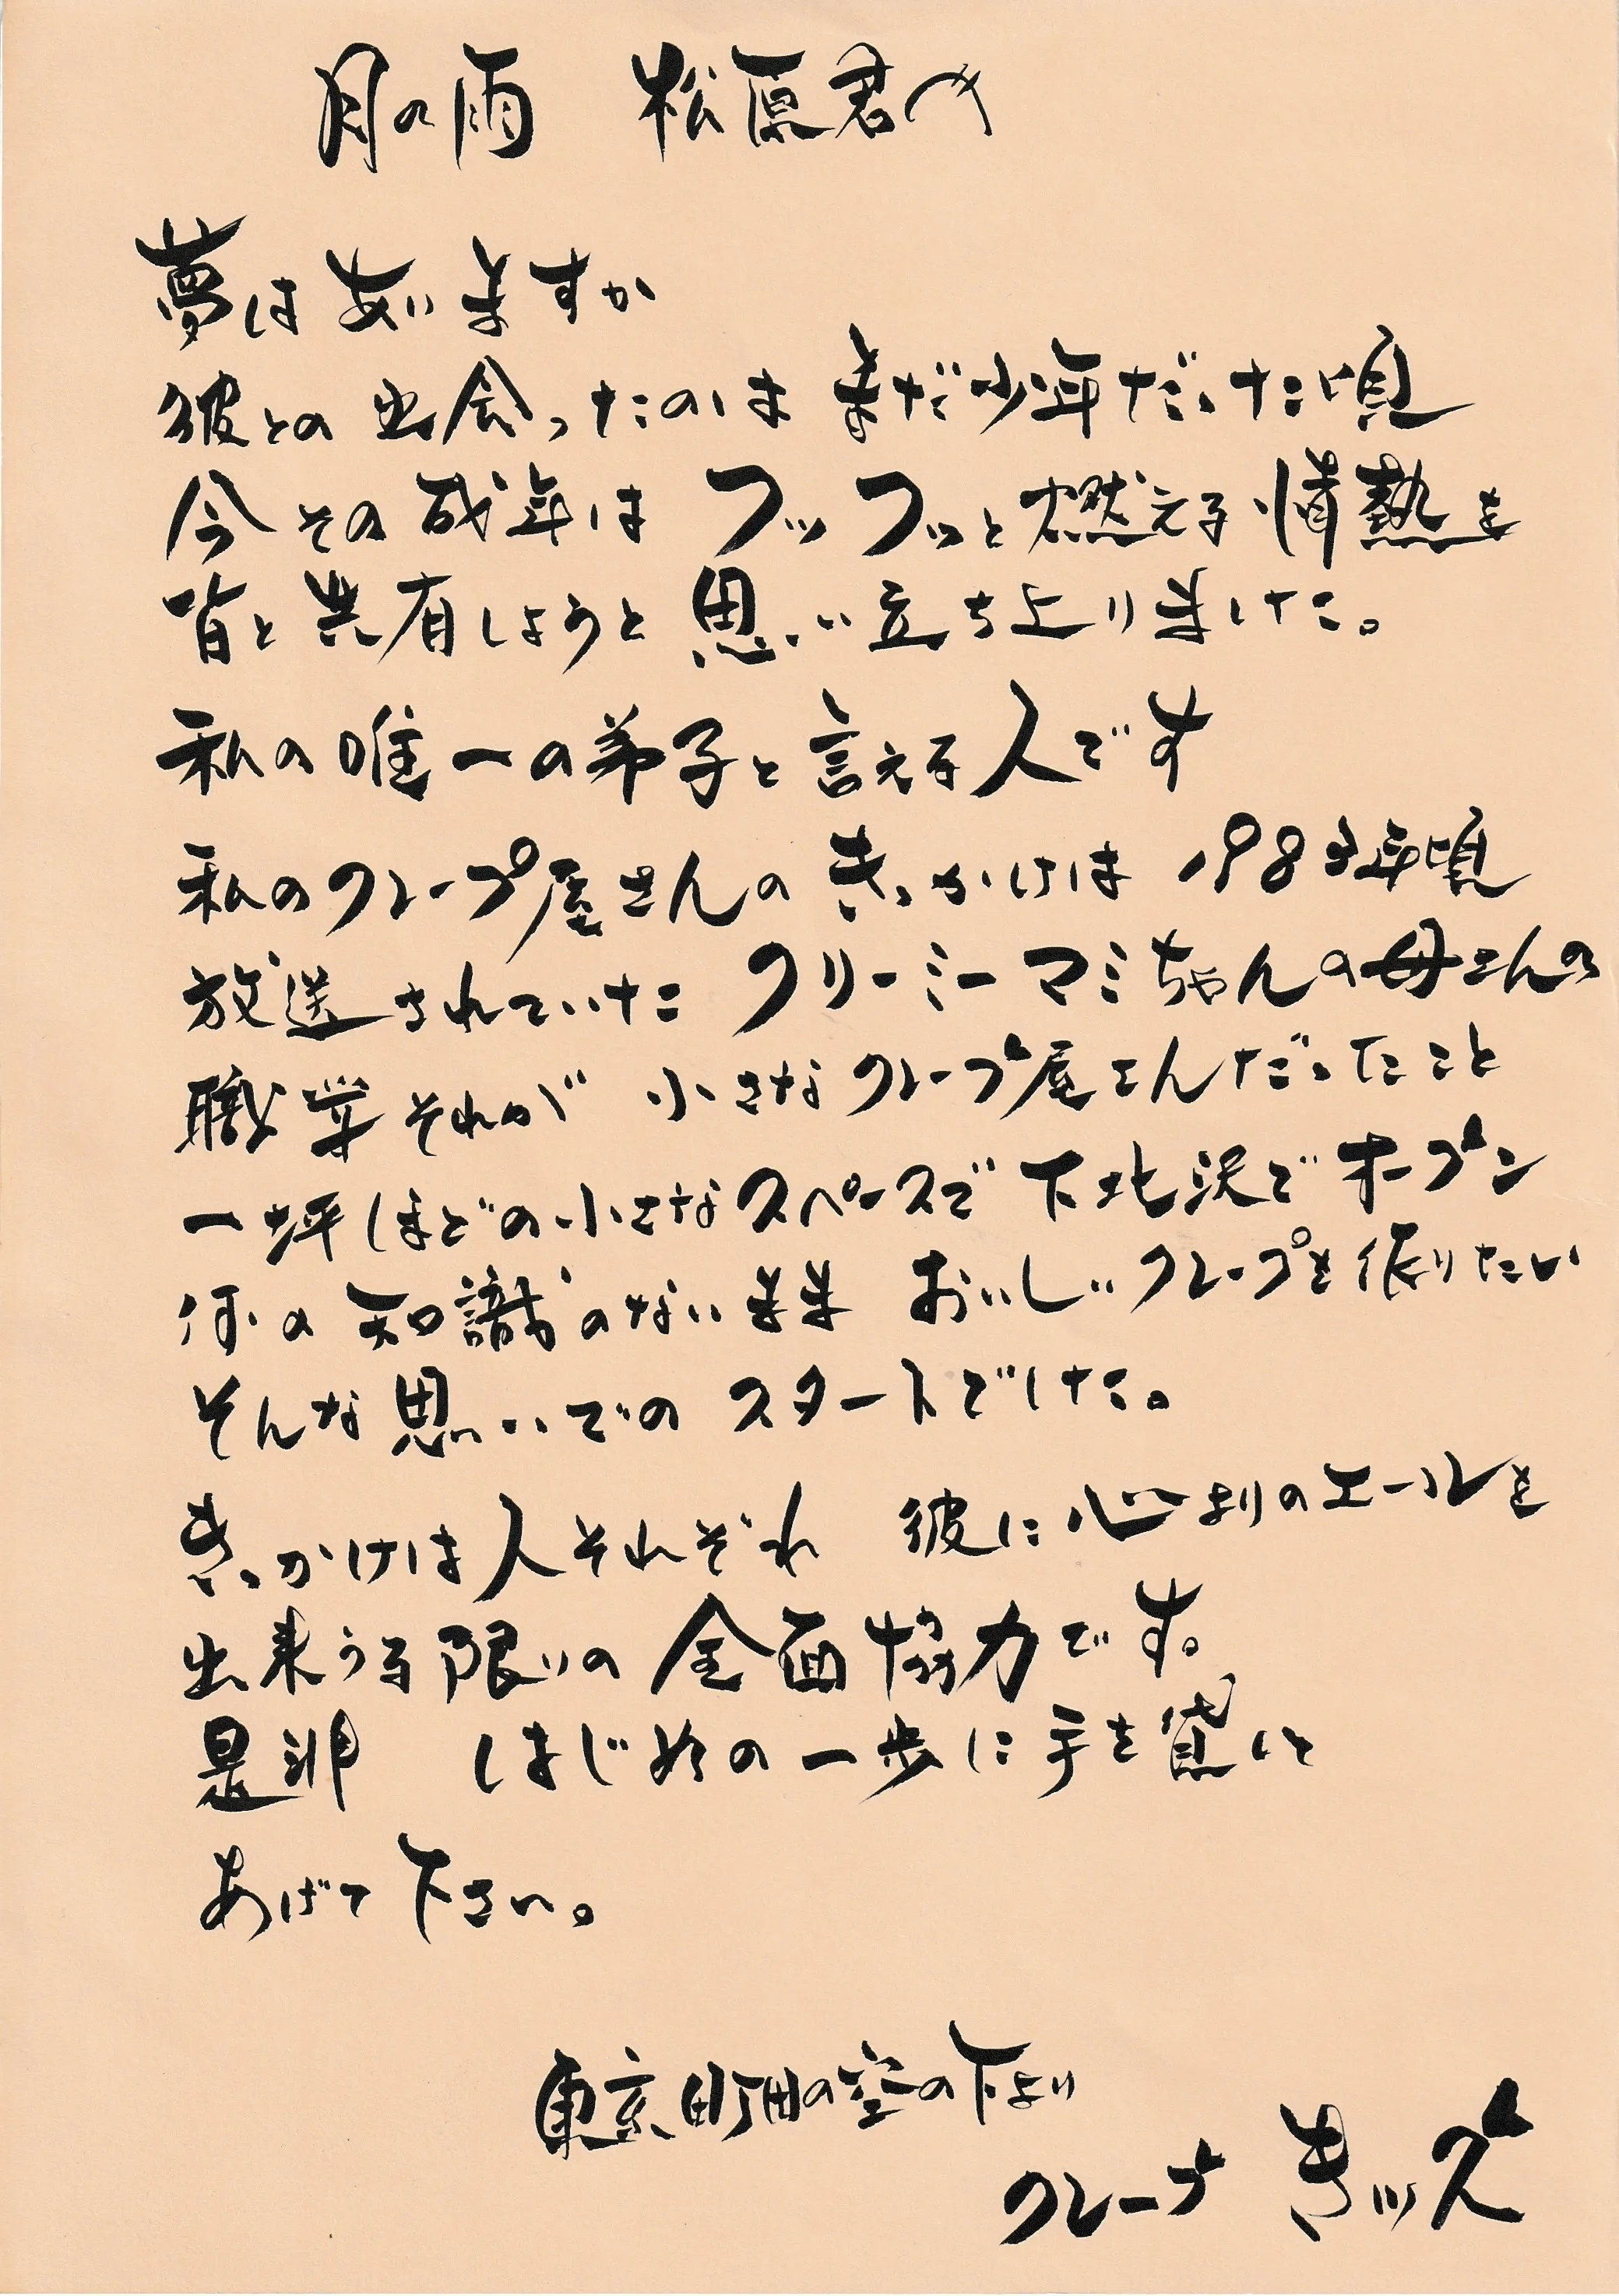 月の雨　松原君へ
夢はありますか
彼との出会ったのは まだ少年だった頃
今その成年は フッフッと燃える情熱を
皆と共有しようと思い立ち上りました。
私の唯一の弟子と言える人です
私のクレープ屋さんの きっかけは 1983年頃
放送されていた クリーミーマミちゃんの母さんの
職業それが 小さなクレープ屋さんだったこと
一坪ほどの小さなスペースで 下北沢でオープン
何の知識のないまま おいしいクレープを作りたい
そんな思いでの スタートでした。
きっかけは人それぞれ 彼に心よりのエールを
出来うる限りの 全面協力です。
是非　はじめの一歩に手を貸して
あげて下さい。
東京町田の空の下より
クレープ　きッズ